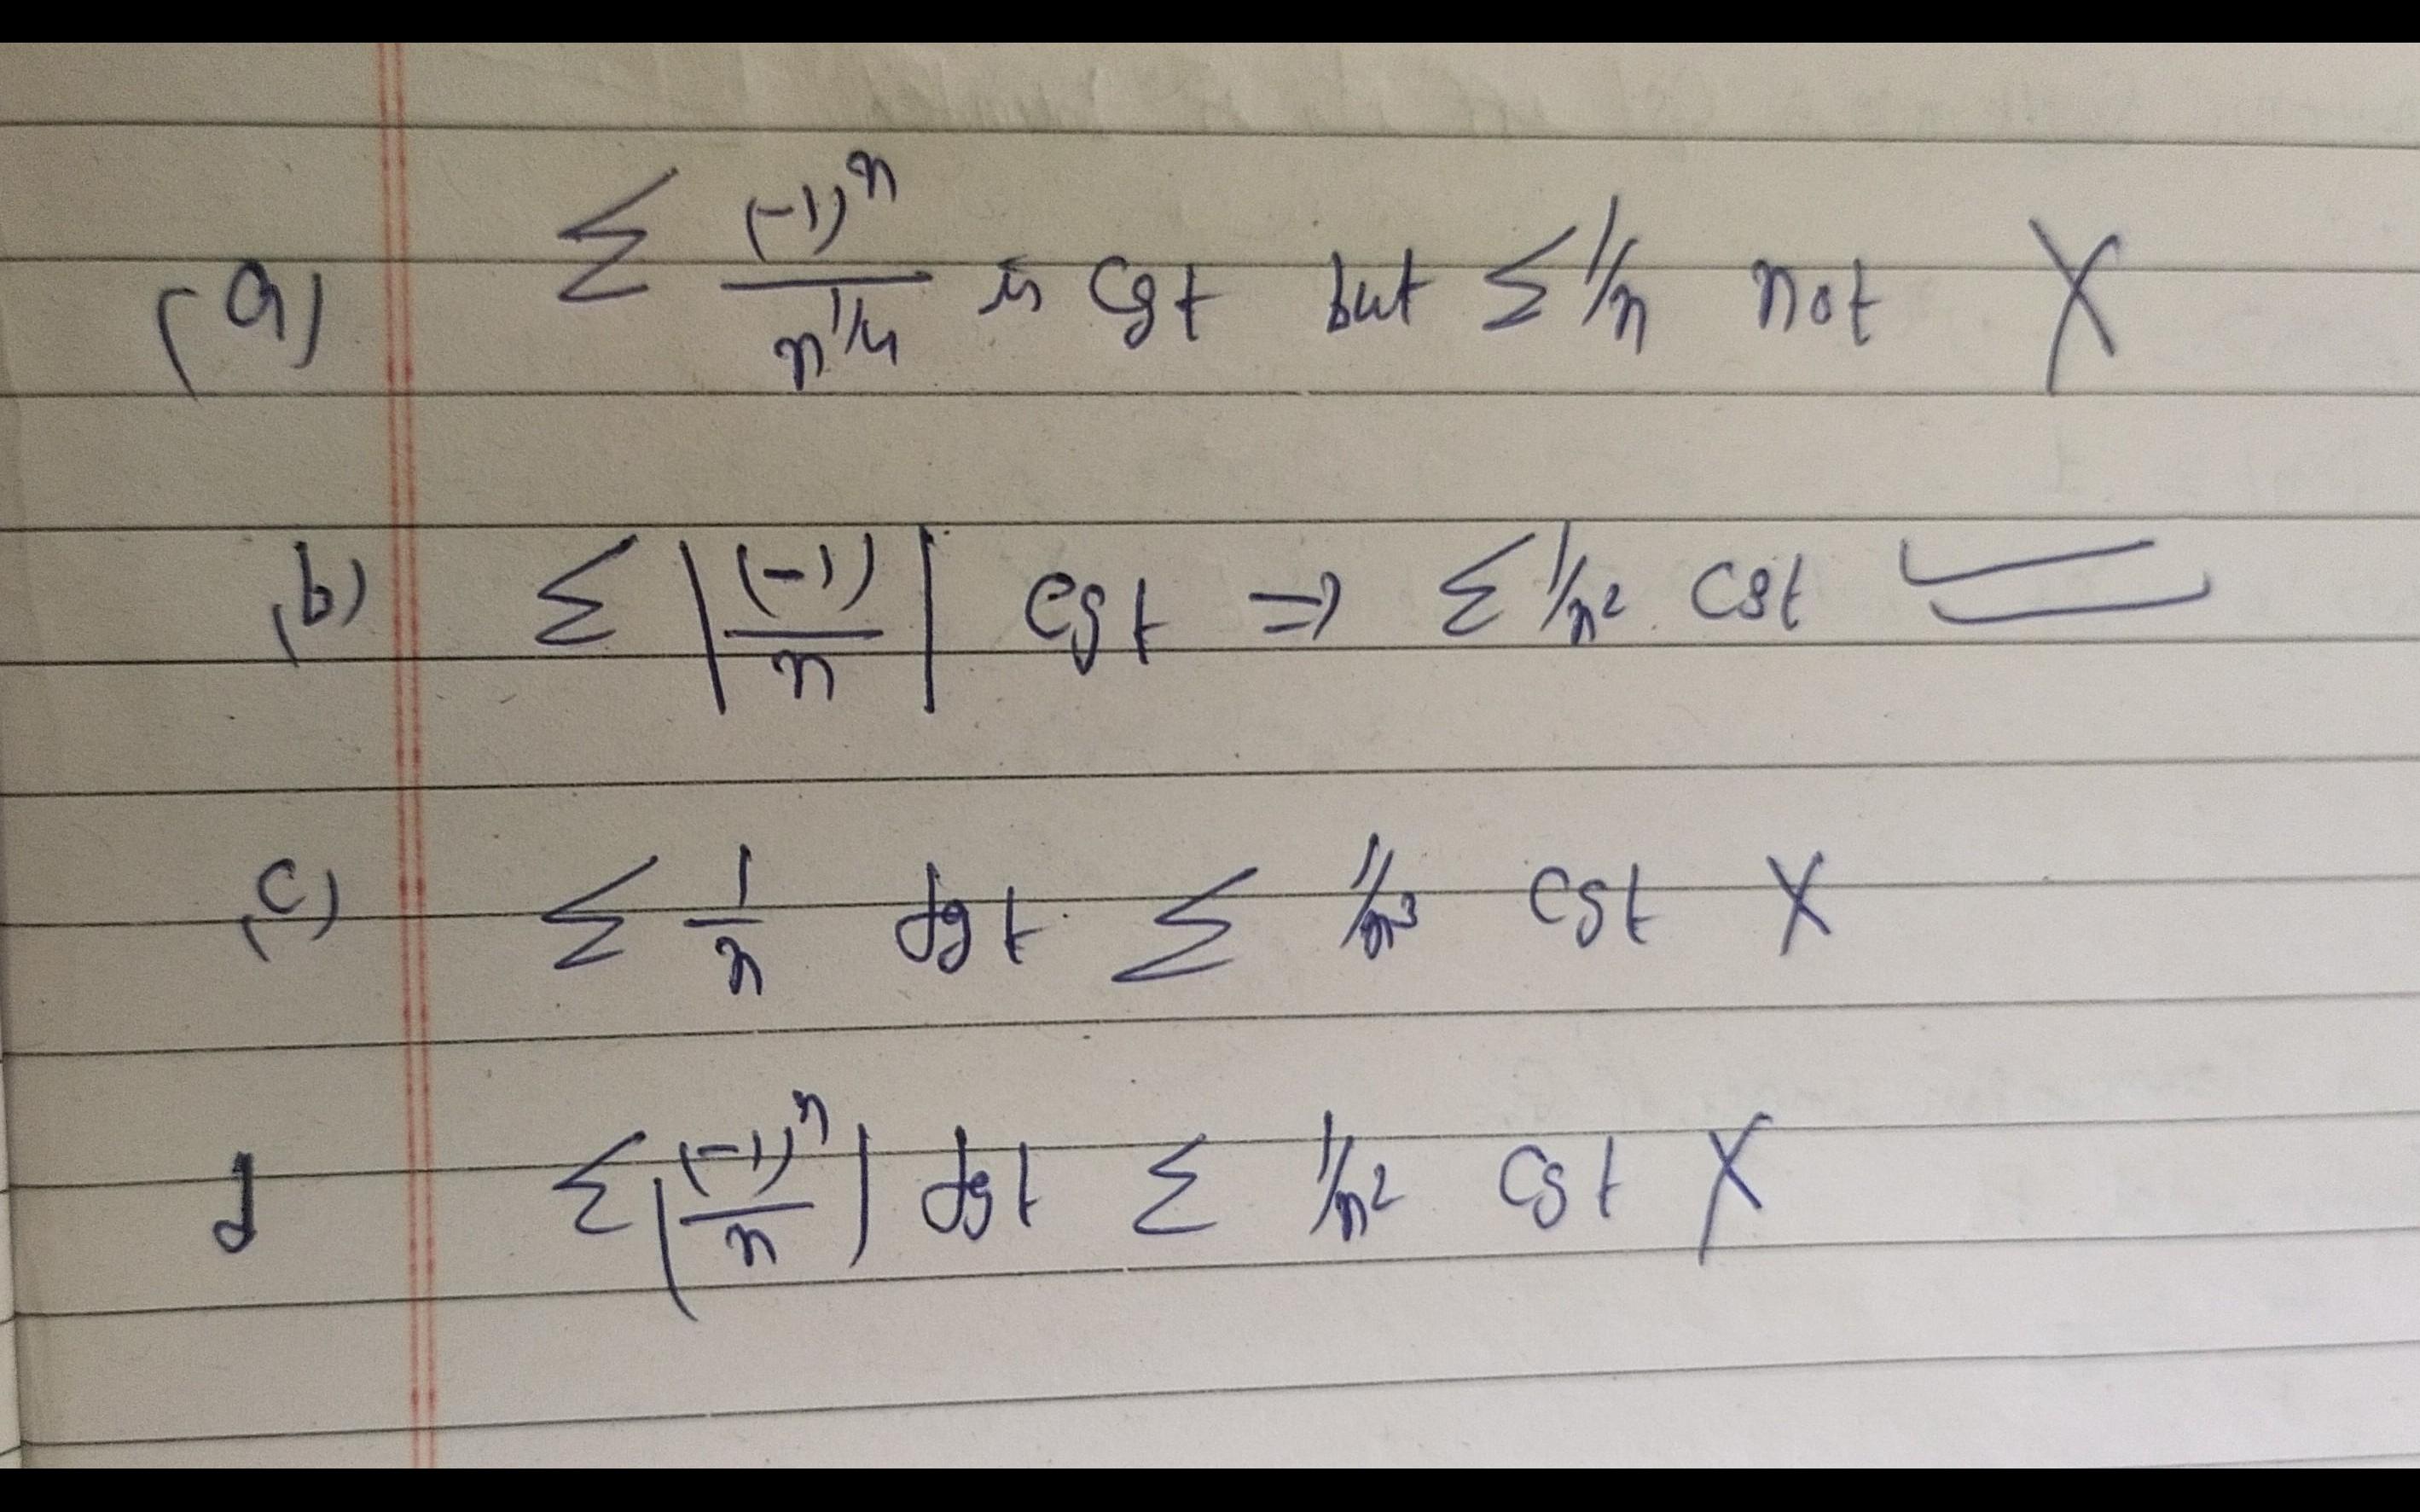 (a) Σ (-1)^n / n^1/4 is cgt but Σ 1/n not X
(b) Σ |(-1)/n| cgt ⇒ Σ 1/n² cgt ✓
(c) Σ 1/n dgt Σ 1/n³ cgt X
d Σ |(-1)^n / n| dgt Σ 1/n² cgt X